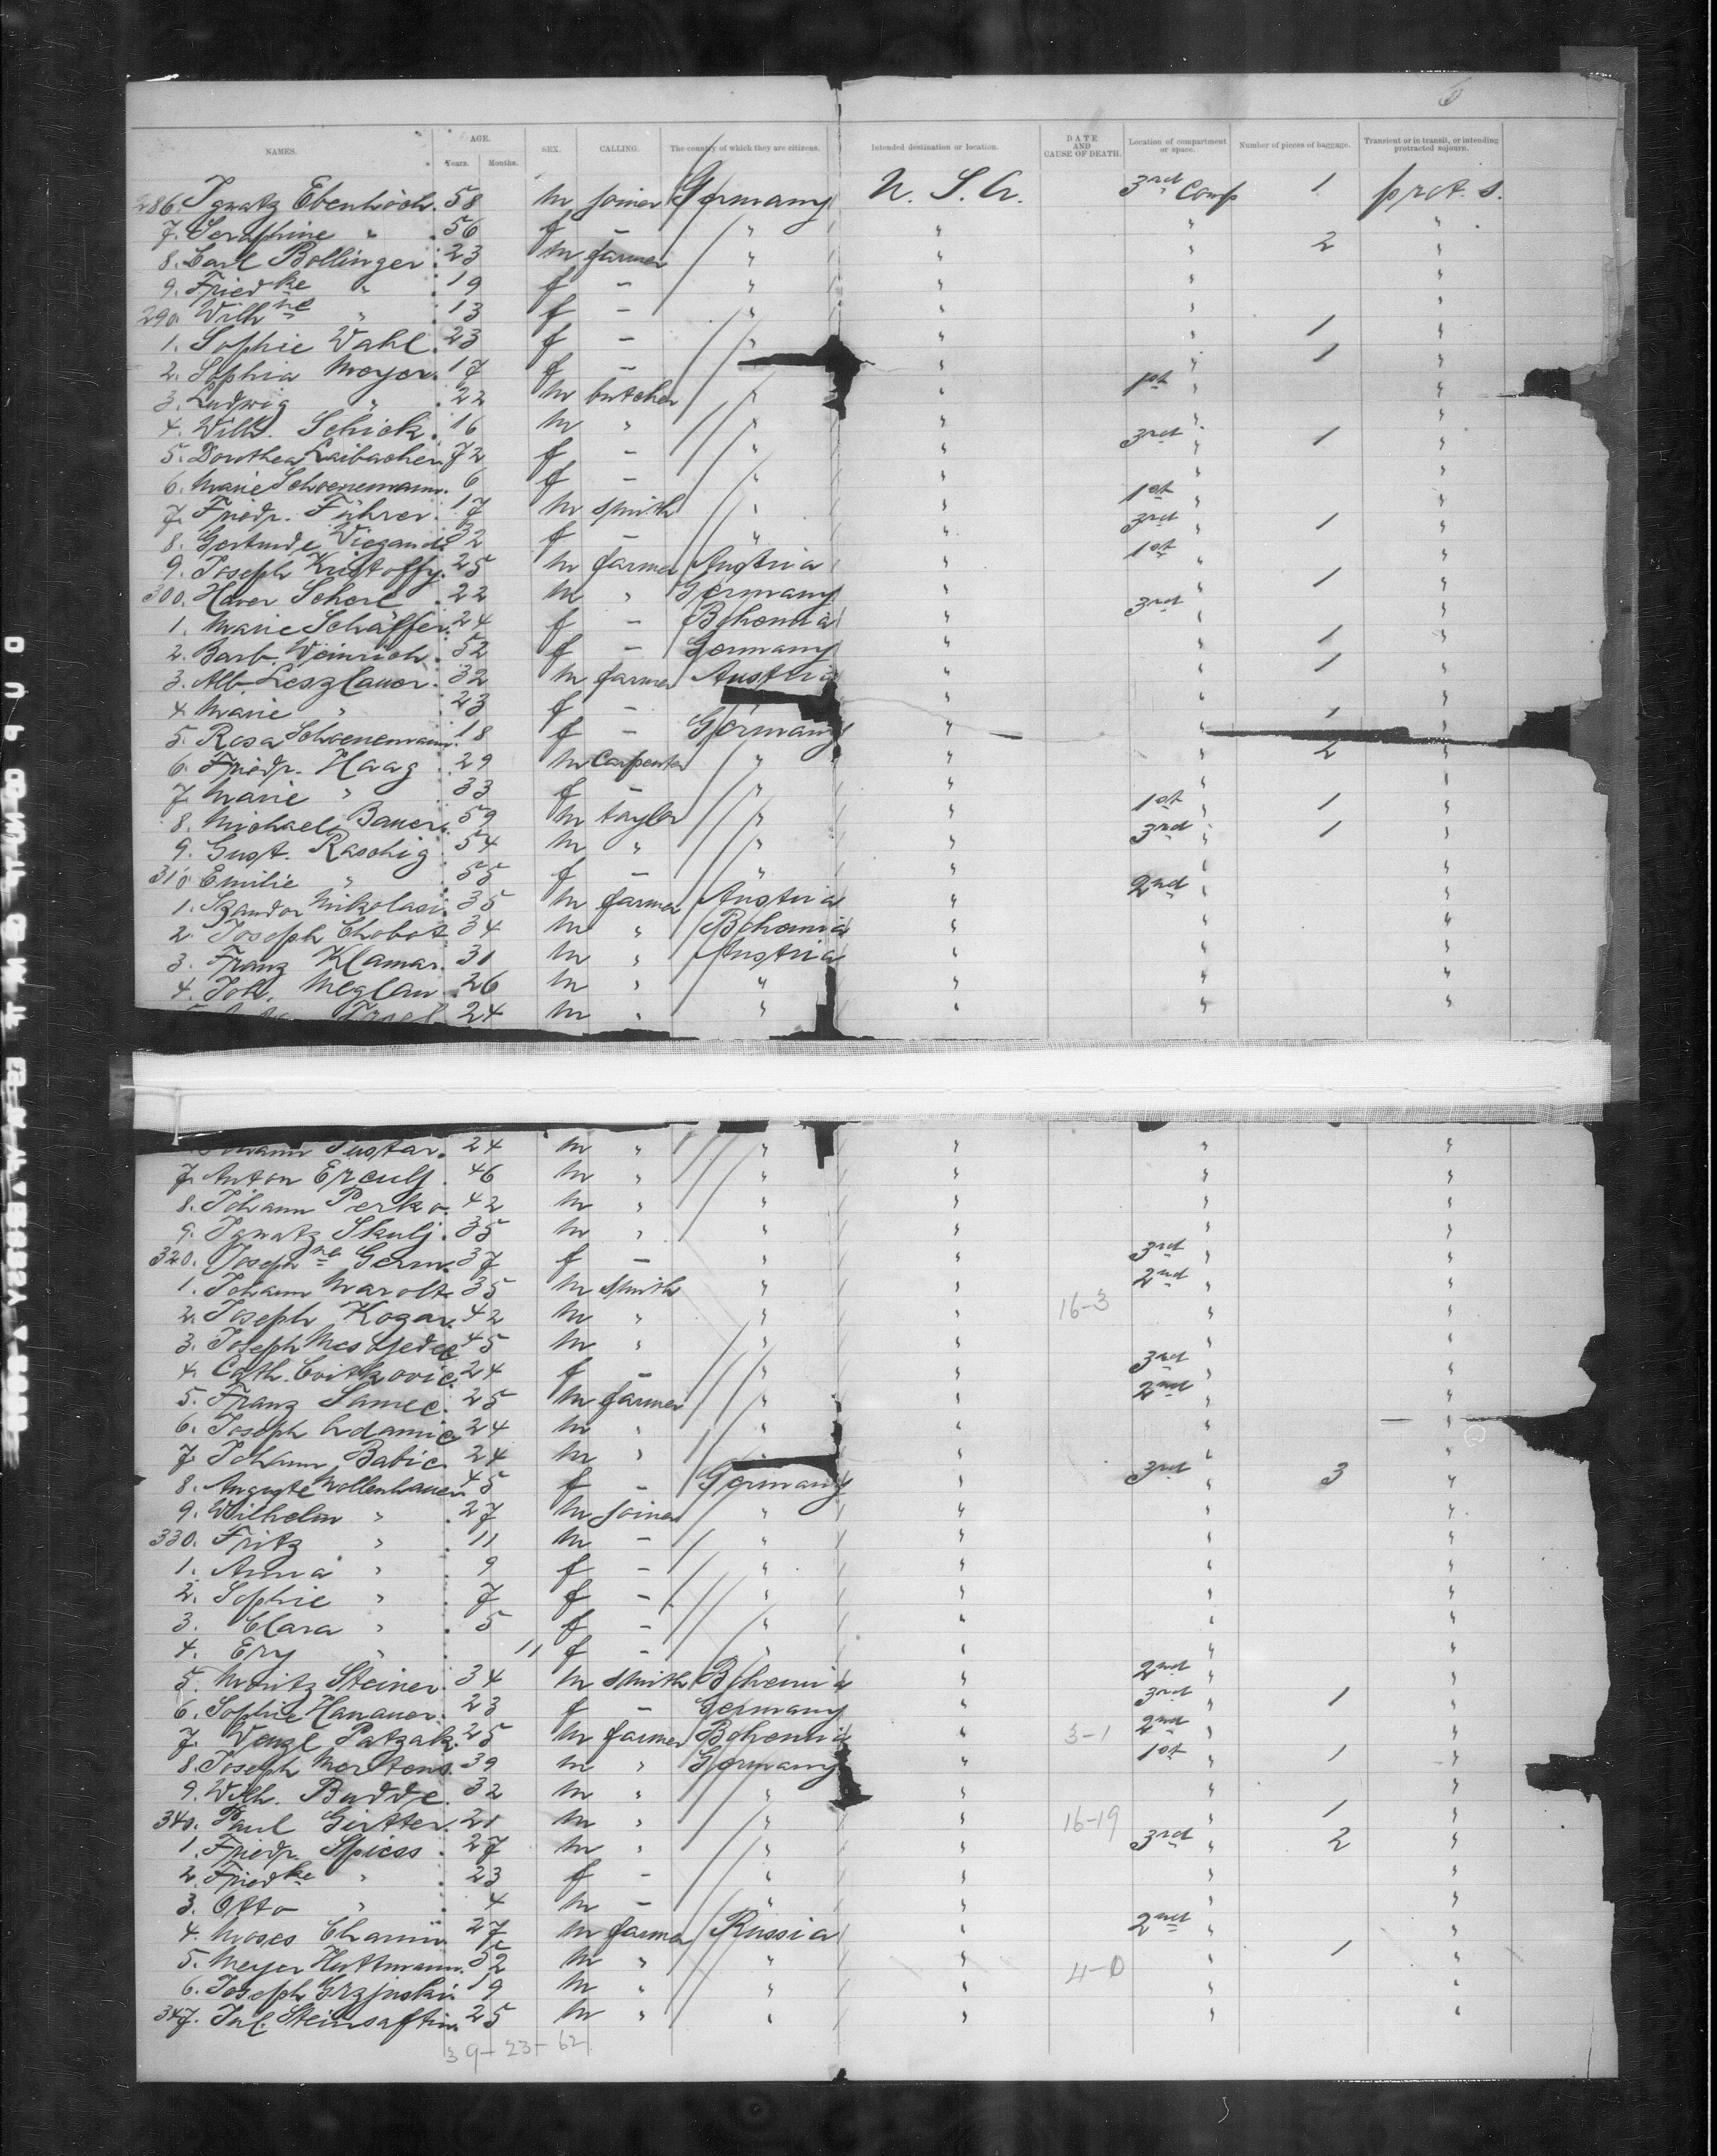 6
NAMES. AGE. Years. Months. SEX. CALLING. The country of which they are citizens. Intended destination or location. DATE AND CAUSE OF DEATH. Location of compartment or space. Number of pieces of baggage. Transient or in transit, or intending protracted sojourn.
286. Ignatz Ebenhöch. 58 m joiner Germany U. S. A. 3rd Comp 1 prot. s.
7. Seraphine " 56 f - " " " "
8. Carl Bollinger 23 m farmer " " " 2 "
9. Friedke " 19 f - " " " "
290. Wilhne " 13 f - " " " "
1. Sophie Wahl. 23 f - " " " 1 "
2. Sophia Meyer. 17 f - " " 1 "
3. Ludwig " 22 m butcher " " 1st " "
4. Wilh. Schick. 16 m " " " " "
5. Dorothea Laibacher. 72 f - " " 3rd " 1 "
6. Marie Schoenemann. 6 f - " " " "
7. Friedr. Führer. 17 m smith " " 1st " "
8. Gertrude Wiegand. 32 f - " " 3rd " 1 "
9. Joseph Kristoffy. 25 m farmer Austria " 1st " "
300. Xaver Scherl. 22 m " Germany " " 1 "
1. Marie Schäffer. 24 f - Bohemia " 3rd " "
2. Barb. Weinrich. 52 f - Germany " " 1 "
3. Alb. Leszlauer. 32 m farmer Austria " " 1 "
4. Marie " 23 f - " " "
5. Rosa Schoenemann. 18 f - Germany " 1 "
6. Friedr. Haag. 29 m Carpenter " " " 2 "
7. Marie " 33 f - " " " "
8. Michael Bauer. 59 m taylor " " 1st " 1 "
9. Gust. Raschig. 54 m " " " 3rd " 1 "
310. Emilie " 55 f - " " " "
1. Szandor Nikolasi. 35 m farmer Austria " 2nd " "
2. Joseph Chobot. 34 m " Bohemia " " "
3. Franz Klamar. 31 m " Austria " " "
4. Joh. Meglan. 26 m " " " " "
24 m " " " " "
Sustar. 24 m " " " " "
7. Anton Erculj. 46 m " " " " "
8. Johann Perko. 42 m " " " " "
9. Ignatz Skulj. 35 m " " " " "
320. Josephne Germ. 37 f - " " 3rd " "
1. Johann Marolt. 35 m smith " " 2nd " "
2. Joseph Kogar. 42 m " " " 16-3 " "
3. Joseph 45 m " " " " "
4. Cath. Cvitkovic. 24 f - " " 3rd " "
5. Franz Samec. 25 m farmer " " 2nd " "
6. Joseph Adamic. 24 m " " " " "
7. Johann Babic. 24 m " " " "
8. Auguste Mollenhauer. 45 f - Germany " 3rd " 3 "
9. Wilhelm " 27 m joiner " " " "
330. Fritz " 11 m - " " " "
1. Anna " 9 f - " " " "
2. Sophie " 7 f - " " " "
3. Clara " 5 f - " " " "
4. Ery " 11 f - " " " "
5. Moritz Steiner. 34 m smith Bohemia " 2nd " "
6. Sophie Hanauer. 23 f - Germany " 3rd " 1 "
7. Wenzl Patzak. 25 m farmer Bohemia " 3-1 2nd " "
8. Joseph Mertens. 39 m " Germany " 1st " 1 "
9. Wilh. Budde. 32 m " " " " "
340. Paul Girtter. 21 m " " " 16-19 " 1 "
1. Friedr. Spiess. 27 m " " " 3rd " 2 "
2. Friedke " 23 f - " " " "
3. Otto " 4 m - " " " "
4. Moses 27 m farmer Russia " 2nd " "
5. Meyer Huttmann. 52 m " " " " 1 "
6. Joseph Grzjnski. 19 m " " " 4-0 " "
347. Jul. 25 m " " " " "
39-23-62